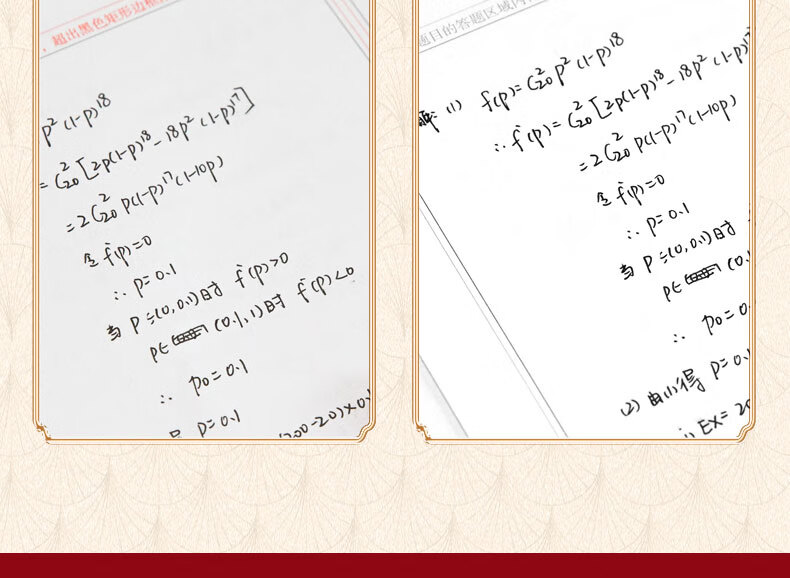 ，超出黑色矩形边框
p² (1-p)¹⁸
= C₂₀² [2p(1-p)¹⁸ - 18p² (1-p)¹⁷]
= 2C₂₀² p(1-p)¹⁷ (1-10p)
令 f'(p)=0
∴ p=0.1
当 p=(0,0.1)时 f'(p)>0
p∈ (0.1,1)时 f'(p)<0
∴ p₀=0.1
p=0.1
200-20)×0.1
题目的答题区域内
解: (1) f(p)=C₂₀² p² (1-p)¹⁸
∴ f'(p)=C₂₀² [2p(1-p)¹⁸ - 18p² (1-p)¹⁷
=2C₂₀² p(1-p)¹⁷ (1-10p)
令 f'(p)=0
∴ p=0.1
当 p=(0,0.1)时
p∈ (0.
∴ p₀=0.
(2) 由(1)得 p=0.1
EX=20